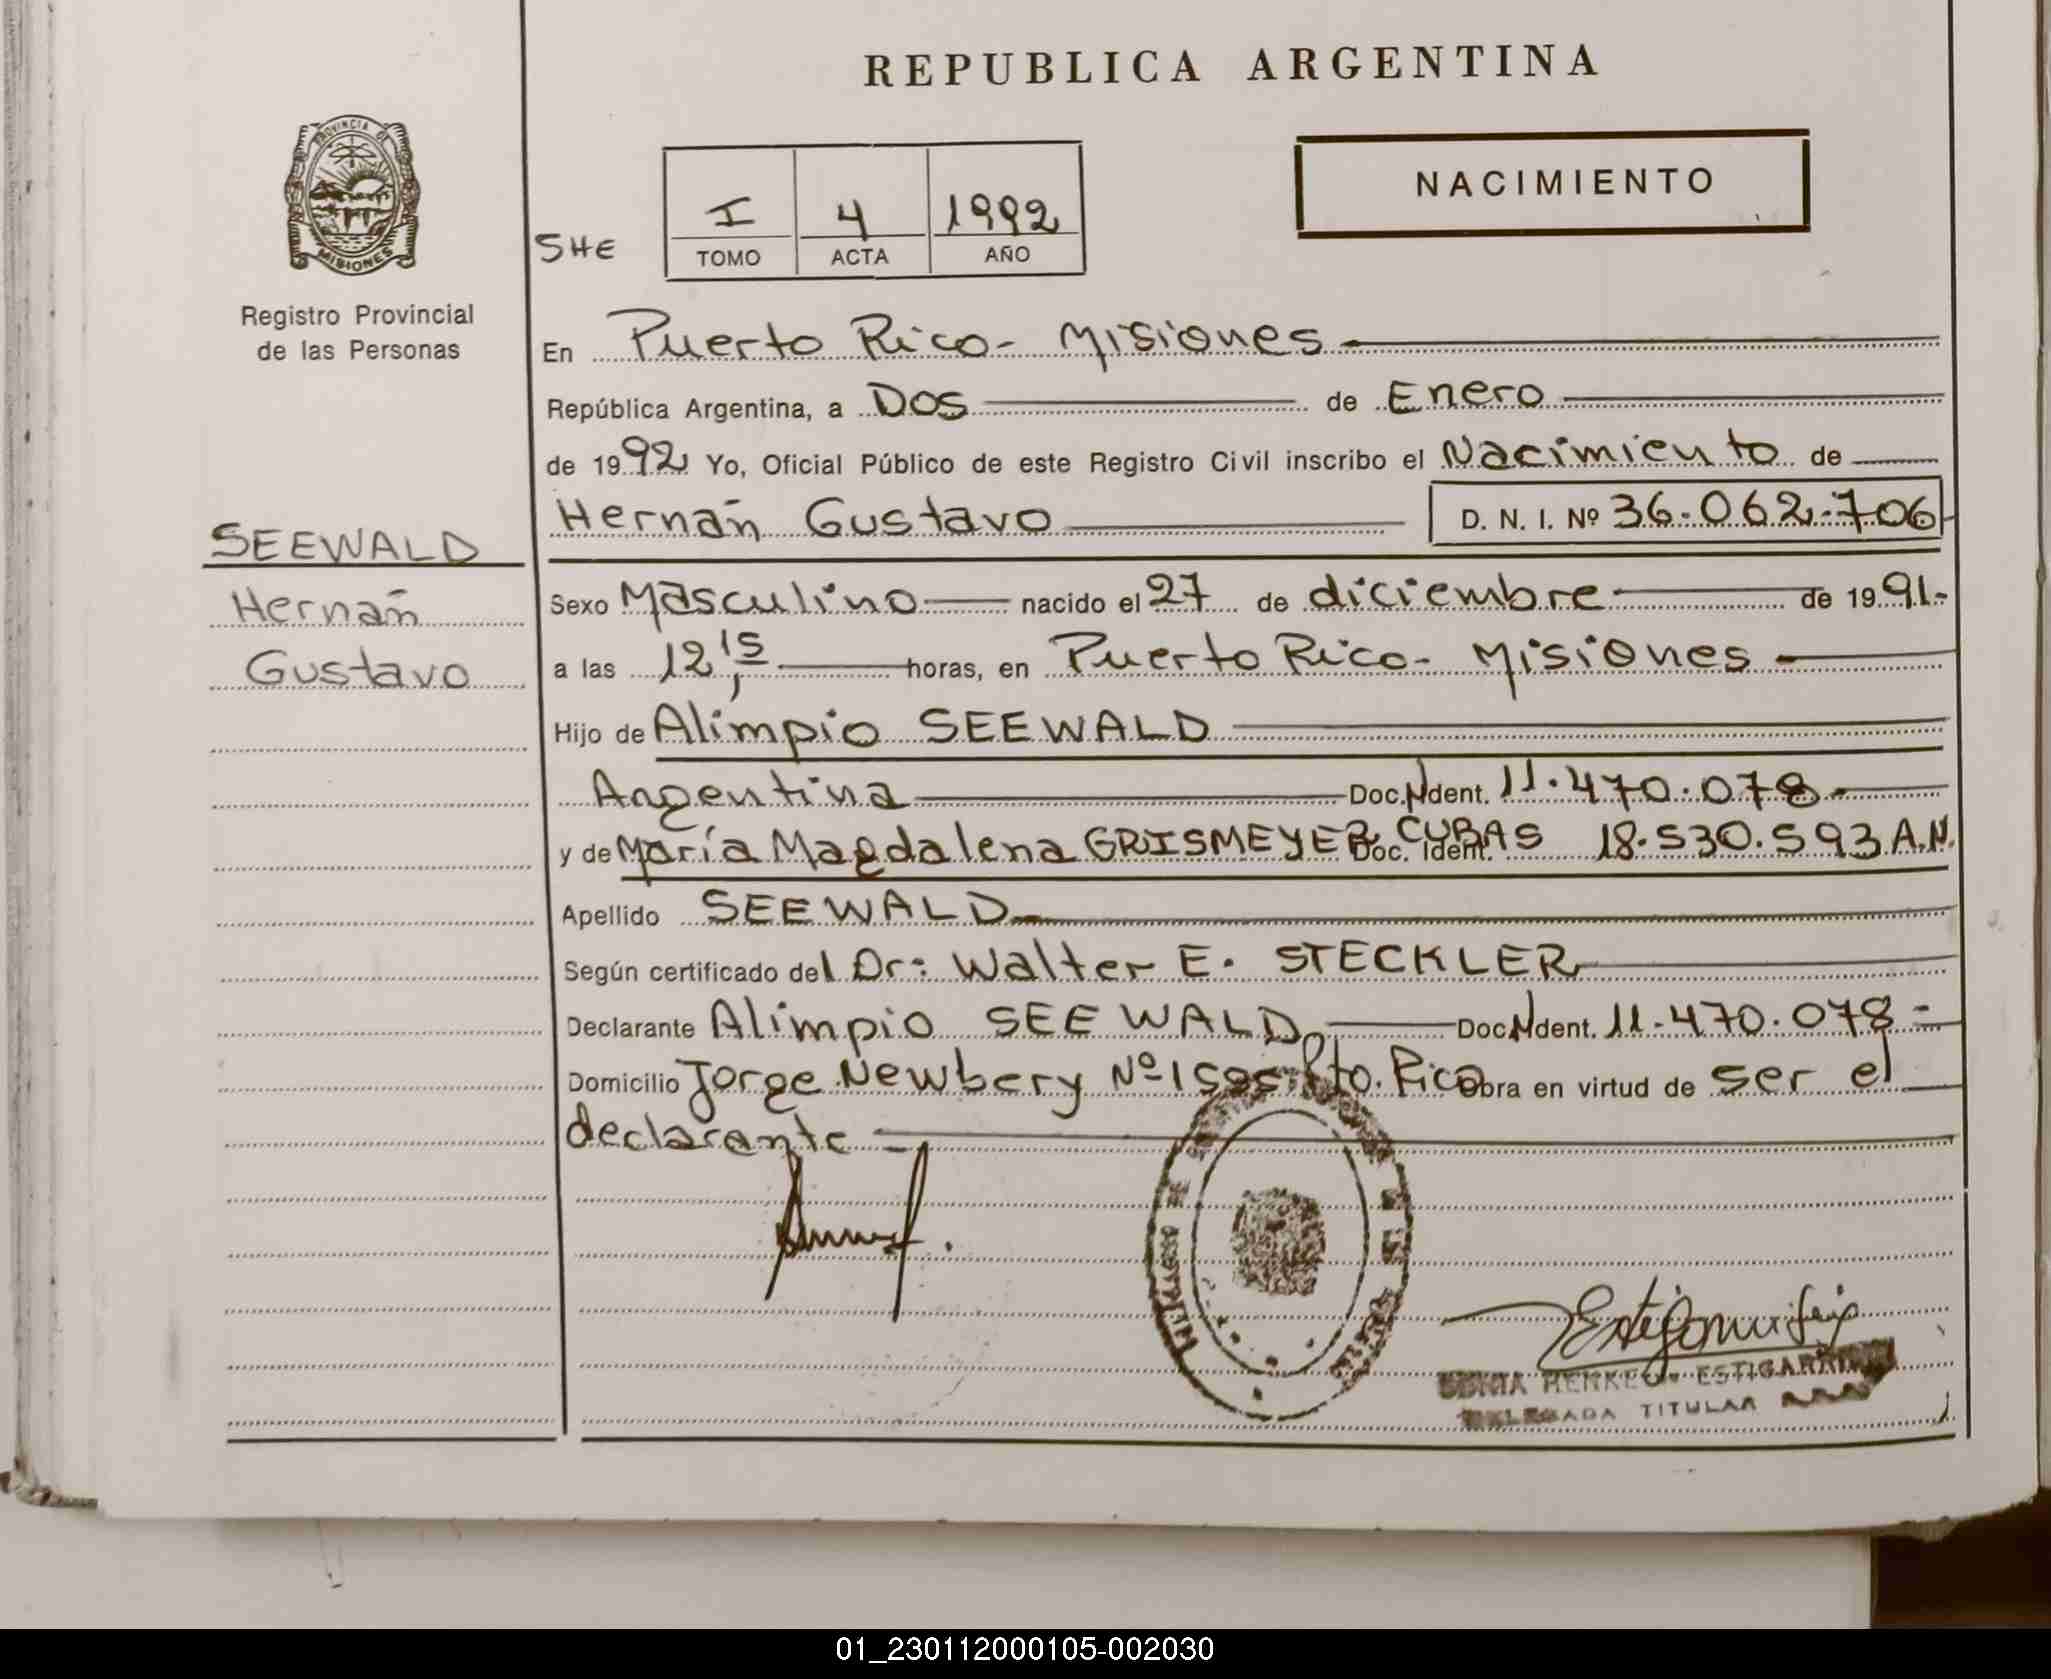 REPUBLICA ARGENTINA
PROVINCIA DE
MISIONES
Registro Provincial
de las Personas
SHE
I 4 1992
TOMO ACTA AÑO
NACIMIENTO
En Puerto Rico - Misiones
República Argentina, a Dos de Enero
de 1992 Yo, Oficial Público de este Registro Civil inscribo el Nacimiento de
Hernán Gustavo D. N. I. Nº 36.062.706
SEEWALD
Hernán
Gustavo
Sexo Masculino nacido el 27 de diciembre de 1991.-
a las 12,15 horas, en Puerto Rico - Misiones
Hijo de Alimpio SEEWALD
Argentina Doc. Ident. 11.470.078.
y de María Magdalena GRISMEYER CUBAS Doc. Ident. 18.530.593 A.N.
Apellido SEEWALD
Según certificado del Dr: Walter E. STECKLER
Declarante Alimpio SEEWALD Doc. Ident. 11.470.078 -
Domicilio Jorge Newbery Nº Pto. Rico obra en virtud de ser el
declarante
HENKE ESTIGARRIBIA
DELEGADA TITULAR
01_230112000105-002030